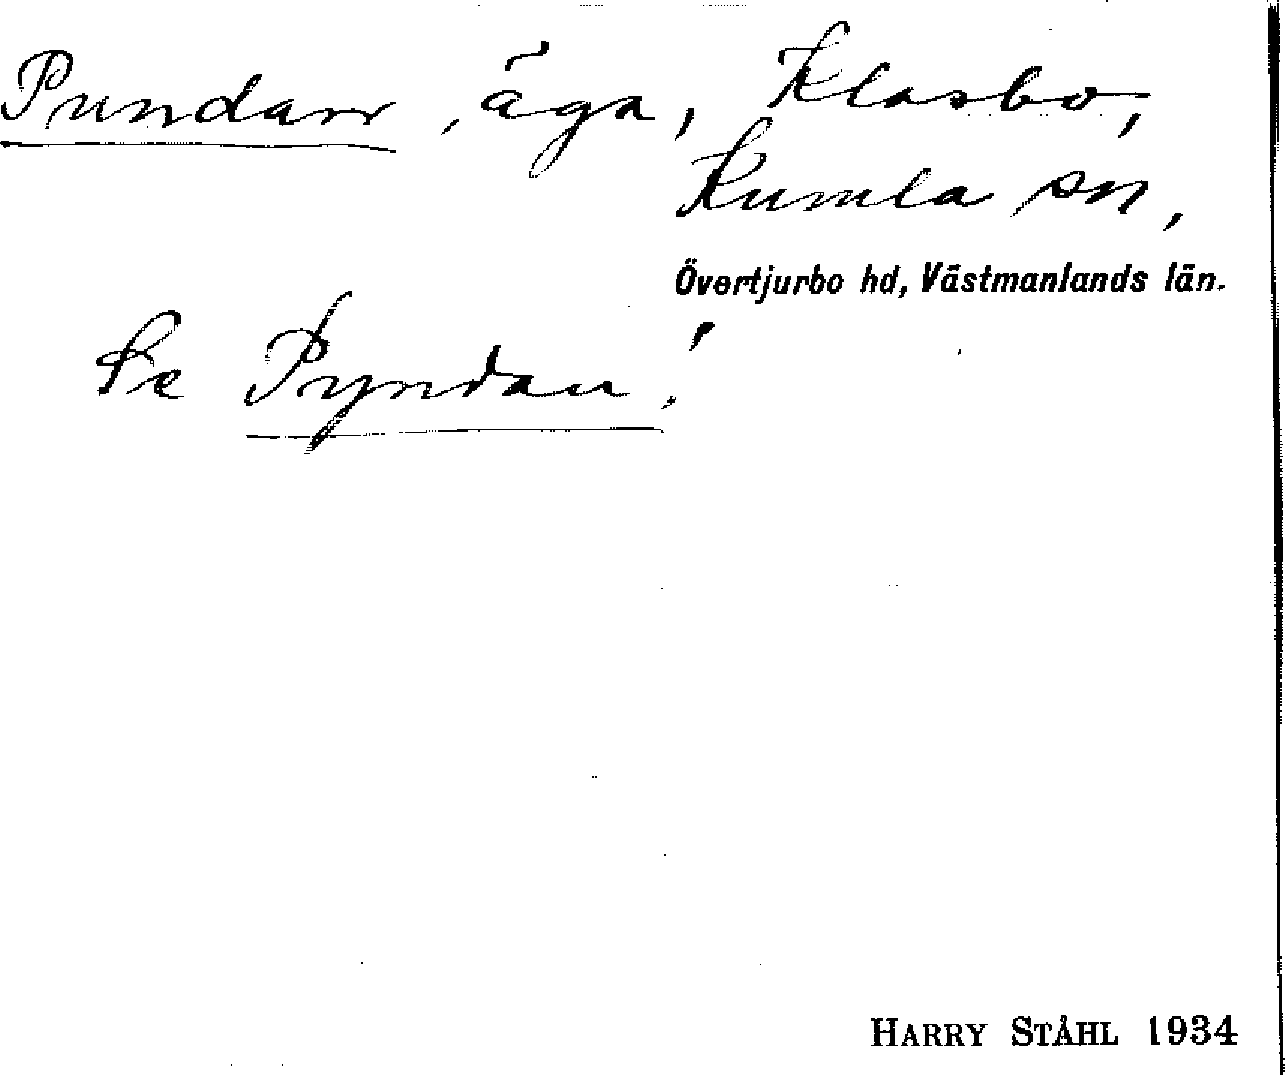 Pundarn, äga, Klasbo,
Kumla sn,
Övertjurbo hd, Västmanlands län.
Se Pyndan!
HARRY STÅHL 1934